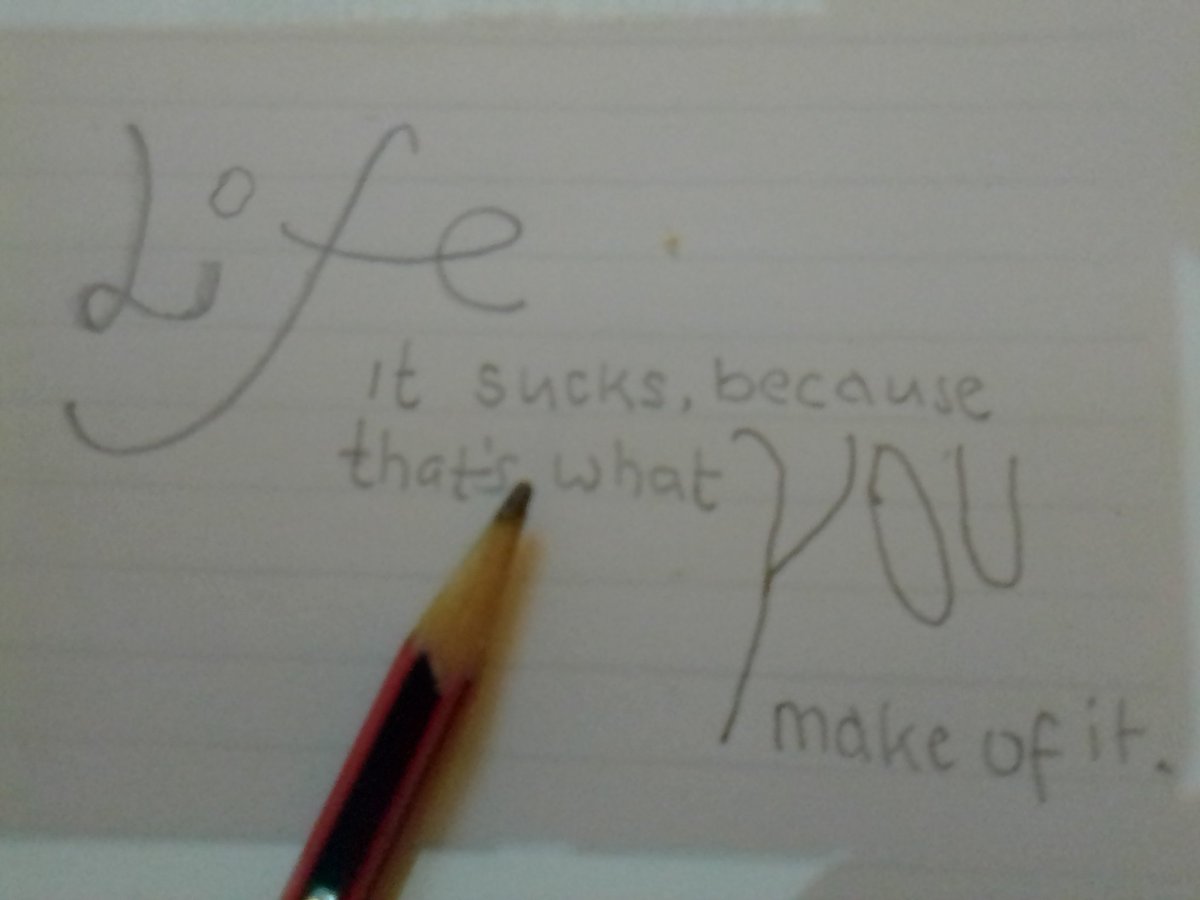 Life
it sucks, because
that's what YOU
make of it.